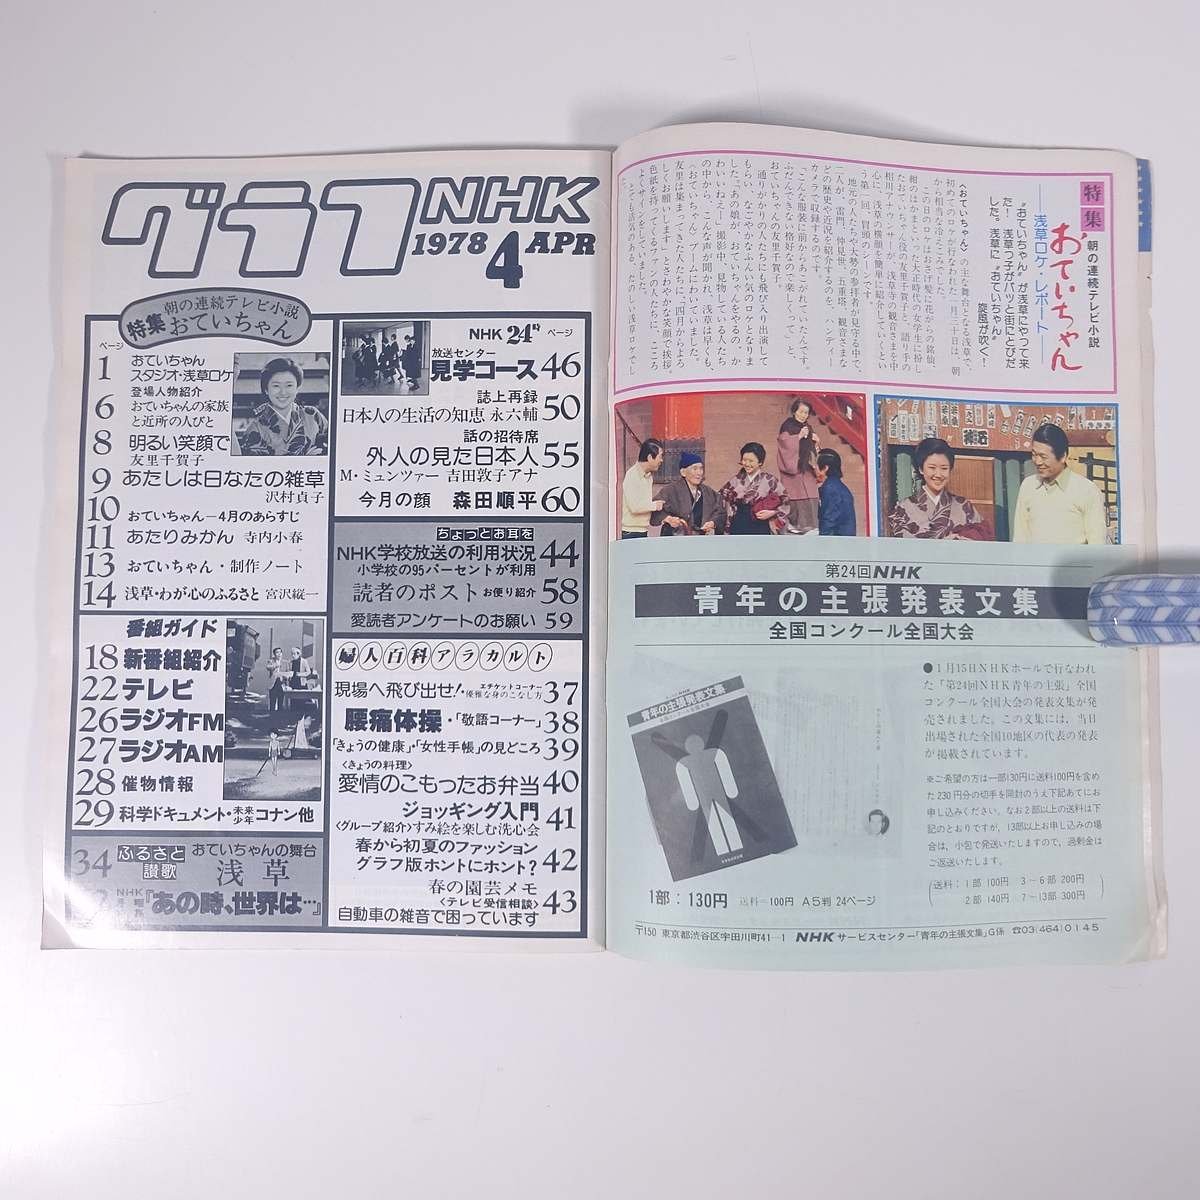 グラフNHK
1978 4 APR
朝の連続テレビ小説
特集 おていちゃん
ページ
1 おていちゃん
スタジオ・浅草ロケ
登場人物紹介
6 おていちゃんの家族
と近所の人びと
8 明るい笑顔で
友里千賀子
9 あたしは日なたの雑草
沢村貞子
10 おていちゃん―4月のあらすじ
11 あたりみかん 寺内小春
13 おていちゃん・制作ノート
14 浅草・わが心のふるさと 宮沢縦一
番組ガイド
18 新番組紹介
22 テレビ
26 ラジオFM
27 ラジオAM
28 催物情報
29 科学ドキュメント・未来少年コナン他
34 ふるさと讃歌 おていちゃんの舞台
浅草
NHK
『あの時、世界は…』
NHK 24時 ページ
放送センター
見学コース 46
誌上再録
日本人の生活の知恵 永六輔 50
話の招待席
外人の見た日本人 55
M・ミュンツァー 吉田敦子アナ
今月の顔 森田順平 60
ちょっとお耳を
NHK学校放送の利用状況 44
小学校の95パーセントが利用
読者のポスト お便り紹介 58
愛読者アンケートのお願い 59
婦人百科アラカルト
現場へ飛び出せ!・エチケットコーナー 優雅な身のこなし方 37
腰痛体操・「敬語コーナー」 38
「きょうの健康」・「女性手帳」の見どころ 39
〈きょうの料理〉
愛情のこもったお弁当 40
ジョッギング入門 41
〈グループ紹介〉すみ絵を楽しむ洗心会
春から初夏のファッション 42
グラフ版ホントにホント?
春の園芸メモ
〈テレビ受信相談〉 43
自動車の雑音で困っています
特集
朝の連続テレビ小説
おていちゃん
―浅草ロケ・レポート―
“おていちゃん”が浅草にやって来
た! 浅草っ子がパッと街にとびだ
した。浅草に“おていちゃん”
旋風が吹く!
〈おていちゃん〉の主な舞台となる浅草で、
初めてのロケが行なわれた一月三十日は、朝
から相当な冷えこみでした。
この日のロケは、おさげ髪に花がらの銘仙、
紺のはかまといった大正時代の女学生に扮し
たおていちゃん役の友里千賀子と、語り手の
相川アナウンサーが、浅草寺の観音さまを中
心に、浅草の横顔を簡単に紹介していくとい
う第一回、冒頭のシーンです。
地元の人たちや大勢の参拝者が見守る中で、
二人が、雷門、仲見世、五重塔、観音さまな
どの歴史や近況を紹介するのを、ハンディー
カメラで収録するのです。
「こんな服装に前からあこがれていたんです。
ふだんできない格好なので楽しくって」と、
おていちゃんの友里千賀子。
通りがかりの人たちにも飛び入り出演して
もらい、なごやかなふんい気のロケとなりま
した。「あの娘が、おていちゃんをやるの、か
わいいねェー」撮影中、見物している人たち
の中から、こんな声が聞かれ、浅草は早くも、
〈おていちゃん〉ブームにわいていました。
友里は集まってきた人たちに、「四月からよろ
しくお願いします」とさわやかな笑顔で挨拶。
色紙を持ってくるファンの人たちに、こころ
よくサインをしていました。
とても活気のあふれた、たのしい浅草ロケでし
第24回NHK
青年の主張発表文集
全国コンクール全国大会
青年の主張発表文集
●1月15日NHKホールで行なわれ
た「第24回NHK青年の主張」全国
コンクール全国大会の発表文集が発
売されました。この文集には、当日
出場された全国10地区の代表の発表
が掲載されています。
※ご希望の方は一部130円に送料100円を含め
た230円分の切手を同封のうえ下記あてにお
申し込みください。なお2部以上の送料は下
記のとおりですが、13部以上お申し込みの場
合は、小包で発送いたしますので、過剰金は
ご返送いたします。
(送料:1部100円 3―6部200円
2部140円 7―13部300円)
1部:130円 送料=100円 A5判24ページ
〒150 東京都渋谷区宇田川町41―1 NHKサービスセンター「青年の主張文集」G係 ☎03(464)0145